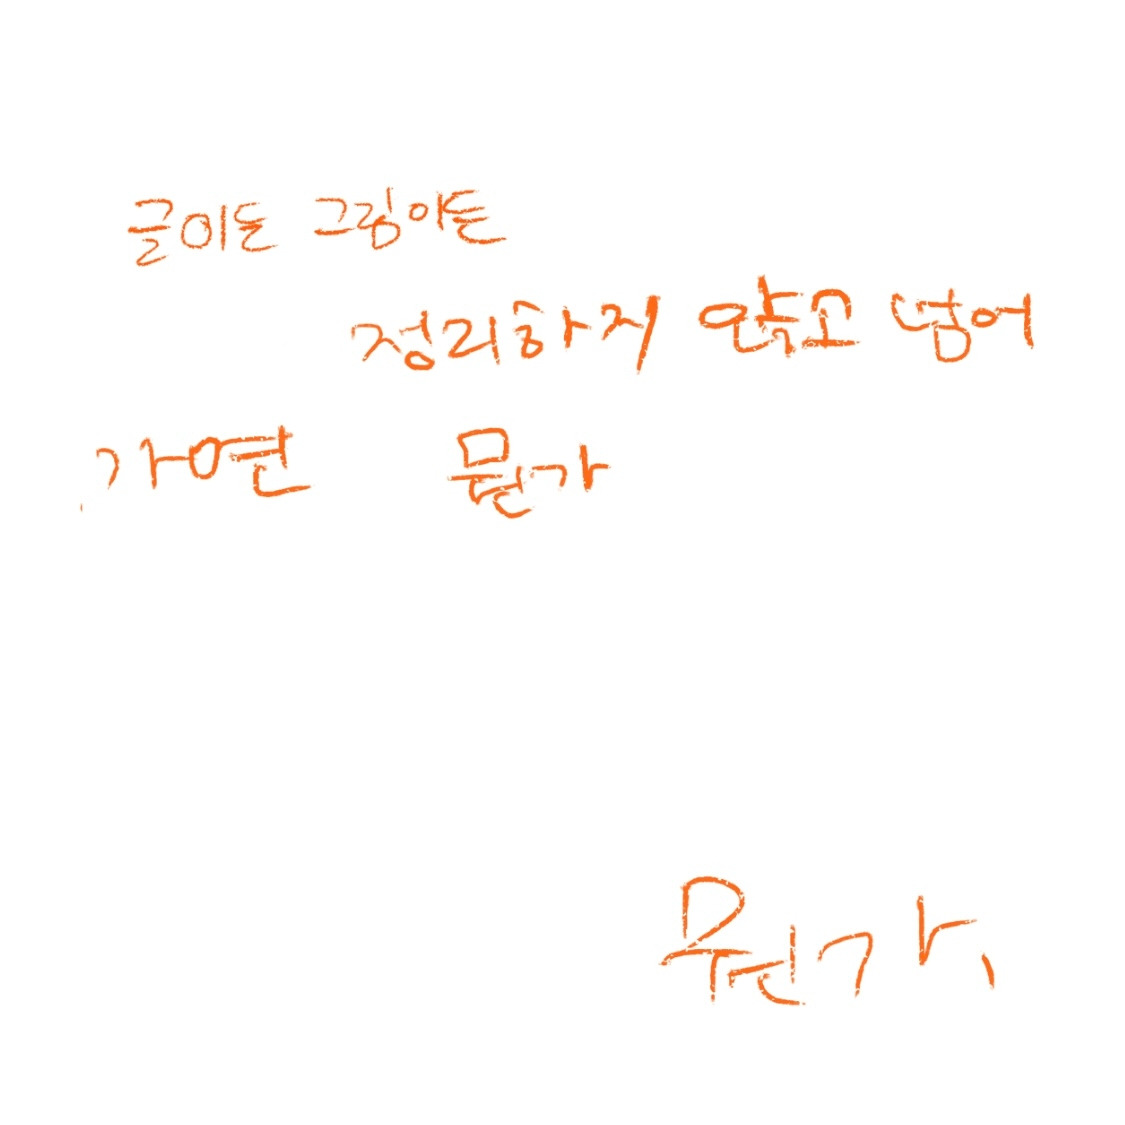 글이든 그림이든
정리하지 않고 넘어
가면 뭔가
뭔가,